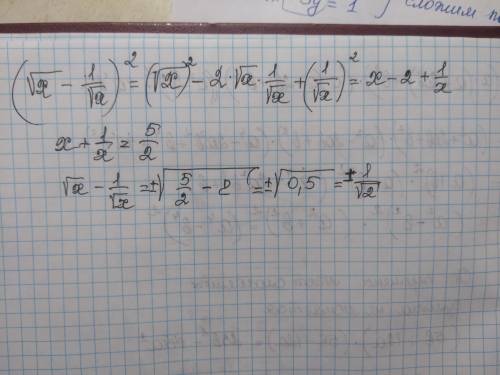 5y = 1 } сложим
(√x - 1/√x)² = (√x)² - 2·√x·1/√x + (1/√x)² = x - 2 + 1/x
x + 1/x = 5/2
√x - 1/√x = ±√(5/2 - 2) = ±√0,5 = ±1/√2